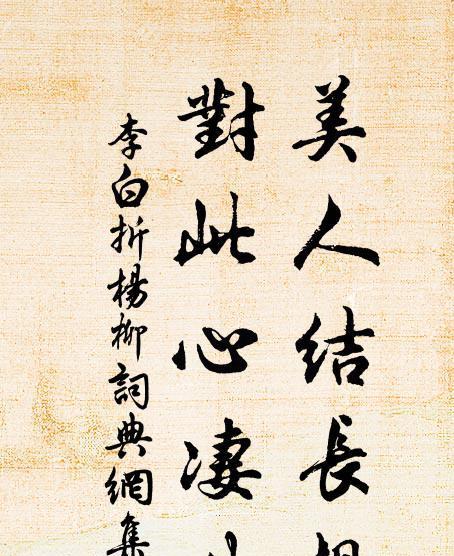 美人結長
對此心凄
李白折楊柳詞典網集